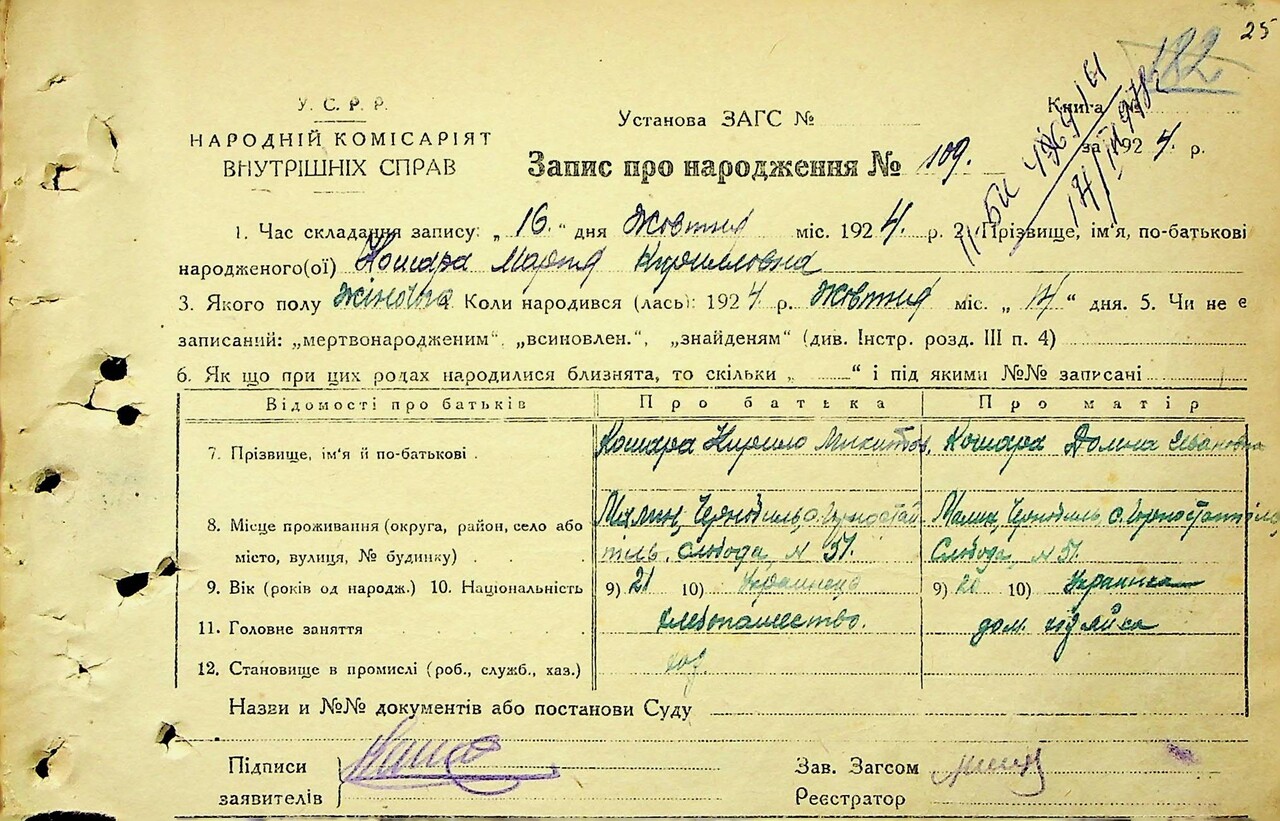 25
182
У. С. Р. Р.
НАРОДНІЙ КОМІСАРІЯТ
ВНУТРІШНІХ СПРАВ
Установа ЗАГС №
Книга №
за 1924 р.
Запис про народження № 109.
1. Час складання запису: „16.“ дня Жовтня міс. 1924. р. 2. Прізвище, ім'я, по-батькові
народженого(ої) Кошара Мария Кирилловна
3. Якого полу жіноча Коли народився (лась): 1924 р. Жовтня міс. „14“ дня. 5. Чи не є
записаний: „мертвонародженим“, „всиновлен.“, „знайденям“ (див. Інстр. розд. III п. 4)
6. Як що при цих родах народилися близнята, то скільки „ “ і під якими №№ записані
Відомості про батьків Про батька Про матір
7. Прізвище, ім'я й по-батькові . Кошара Кирило Микитов. Кошара Ивановна
8. Місце проживання (округа, район, село або Малин, Чернобиль, с. Горностай Малин, Чернобиль, с. Горностайпіль
місто, вулиця, № будинку) піль. Слобода, № 51. Слобода, № 51.
9. Вік (років од народж.) 10. Національність 9) 21 10) Украинець 9) 20 10) Украинка
11. Головне заняття хлебопашество. дом. хазяйка
12. Становище в промислі (роб., служб., хаз.) хаз.
Назви и №№ документів або постанови Суду
Підписи Зав. Загсом
заявителів Реєстратор